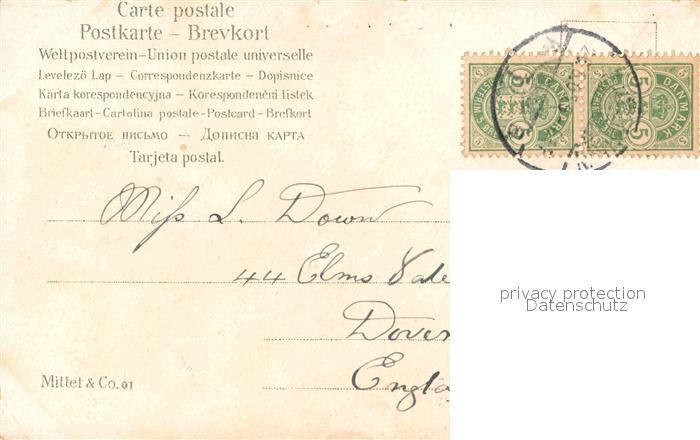 Carte postale
Postkarte – Brevkort
Weltpostverein–Union postale universelle
Levelező Lap – Correspondenzkarte – Dopisnice
Karta korespondencyjna – Korespondenční lístek
Briefkaart–Cartolina postale–Postcard–Brefkort
Открытое письмо — Дописна карта
Tarjeta postal.
DANMARK
5
5
Miss L. Down
44 Elms Vale
Dover
Engla
privacy protection
Datenschutz
Mittet & Co. 01